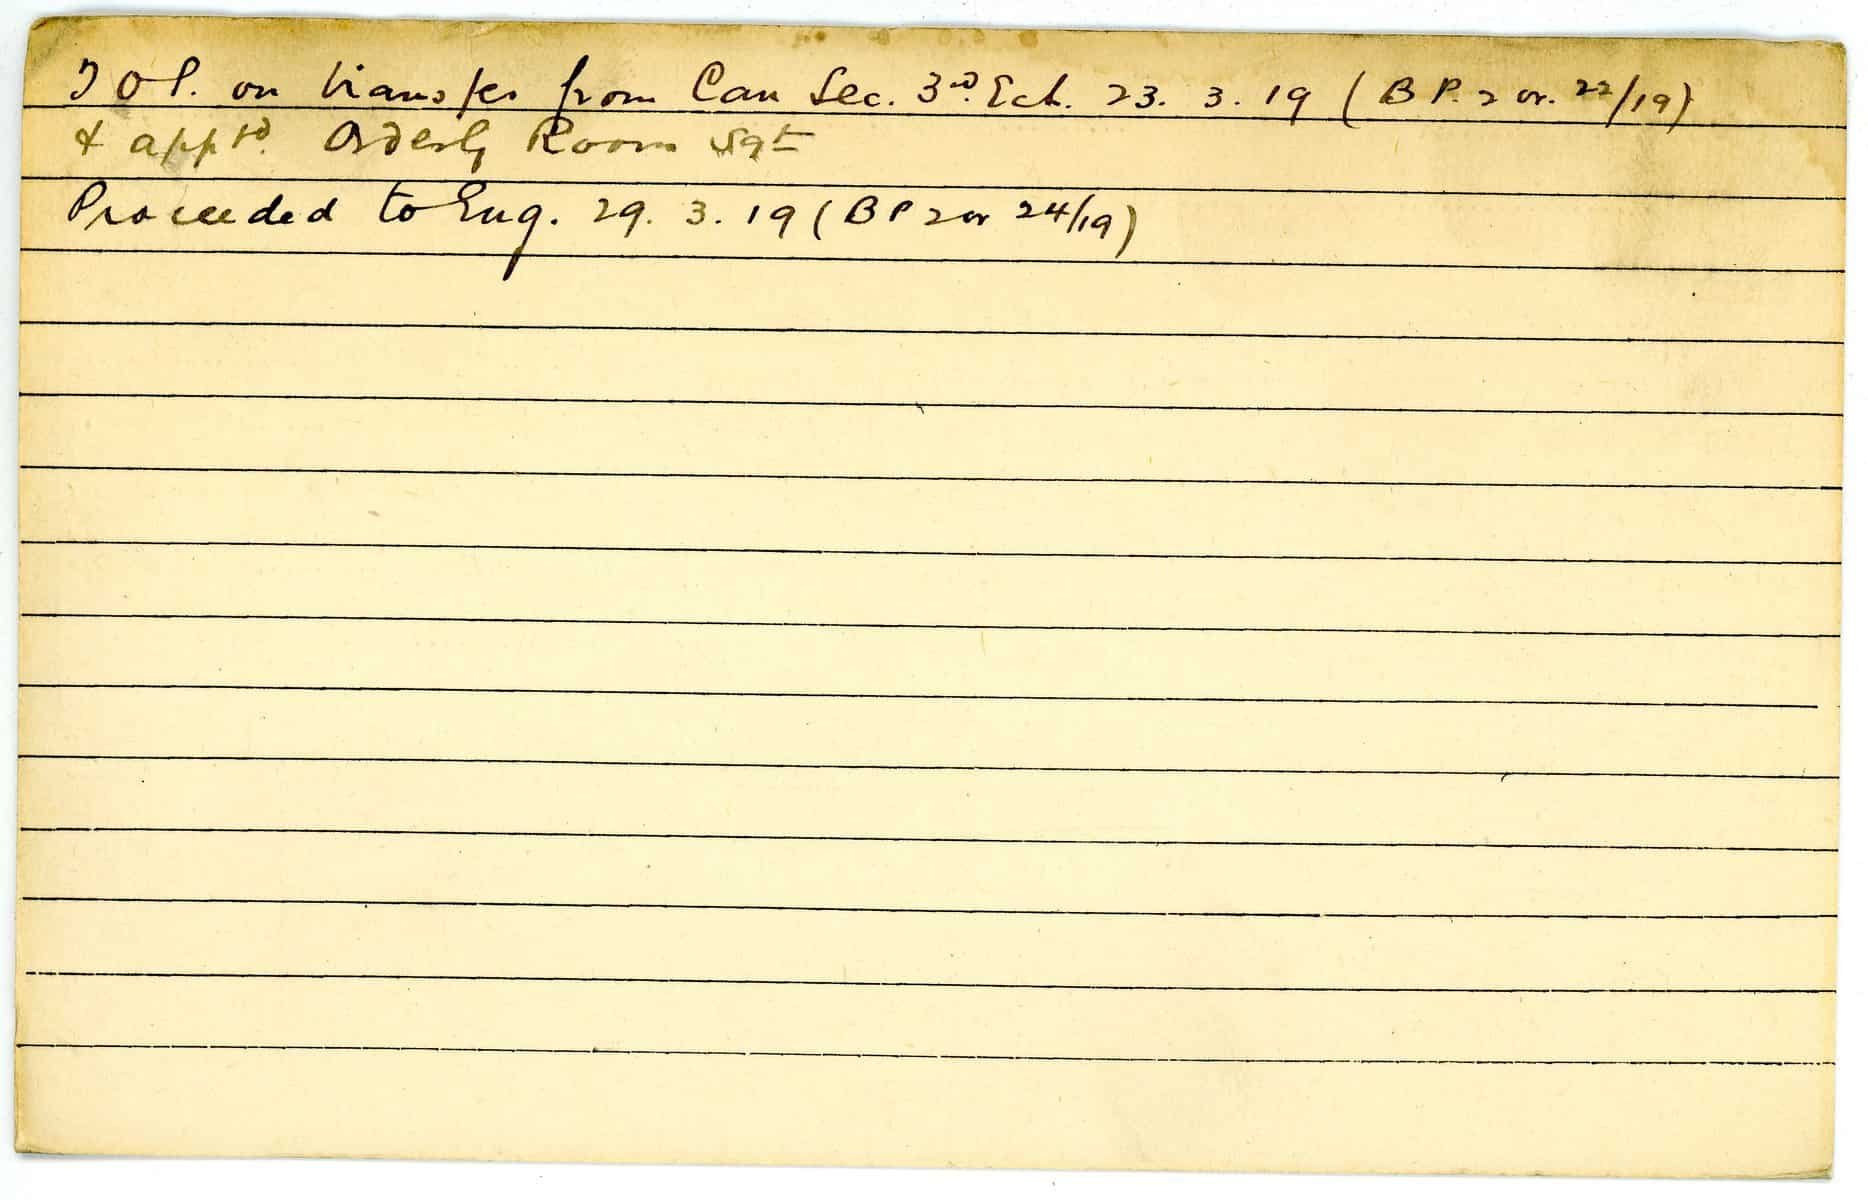 TOS. on transfer from Can Sec. 3rd. Ech. 23. 3. 19 ( B P. 2 or. 22/19)
& apptd. Orderly Room Sgt
Proceeded to Eng. 29. 3. 19 ( B P 2 or 24/19)